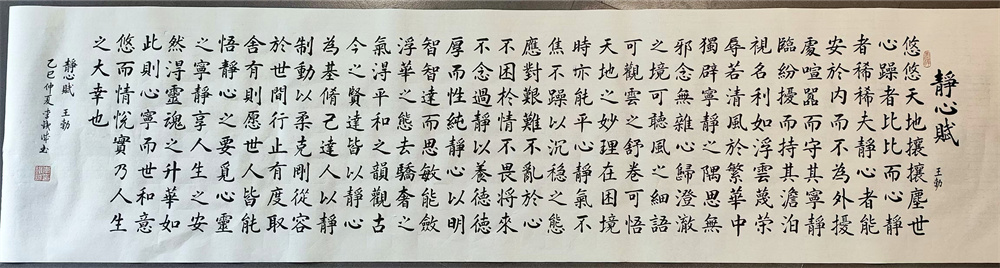 靜心賦
王勃
悠悠天地攘攘塵世
心躁者比比而心靜
者稀稀夫靜心者能
安於內而不為外擾
處喧囂而守其寧靜
臨紛擾而持其澹泊
視名利如浮雲蔑榮
辱若清風於繁華中
獨辟寧靜之隅思無
邪念無雜心歸澄澈
之境可聽風之細語
可觀雲之舒卷可悟
天地之妙理在困境
時亦能平心靜氣不
焦不躁以沉穩之態
應對艱難不亂於心
不困扵情不畏將來
不念過靜以養德德
厚而性純靜心以明
智智達而思敏能斂
浮華之態去驕奢之
氣得平和之韻觀古
今之賢達皆以靜心
為基脩己達人以靜
制動以柔克剛從容
於世間行止有度取
舍有則愿世人皆能
悟靜心之要覓心靈
之寧靜享人生之安
然得靈魂之升華如
此則心寧而世和意
悠而情悅實乃人生
之大幸也
靜心賦 王勃
乙巳仲夏